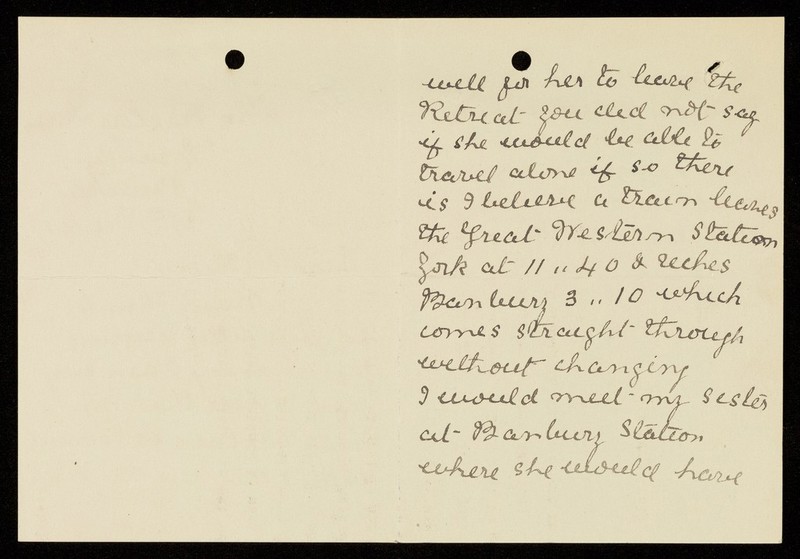 well for her to leave the
Retreat you did not say
if she would be able to
travel alone if so there
is I believe a train leaves
the Great Western Station
York at 11 ,, 40 & reches
Banbury 3 ,, 10 which
comes straight through
without changing
I would meet my sister
at Banbury Station
where she would have